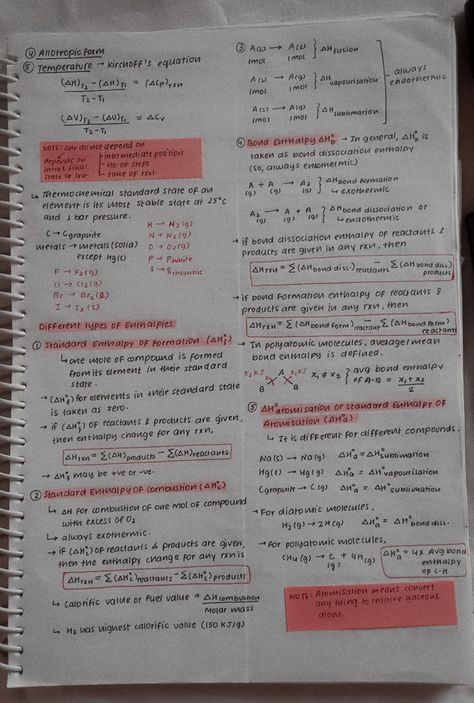 ④ Allotropic form
⑤ Temperature → Kirchoff's equation
(ΔH)T₂ - (ΔH)T₁ / T₂-T₁ = (ΔCp)rxn
(ΔU)T₂ - (ΔU)T₁ / T₂-T₁ = ΔCv
NOTE: ΔH do not depend on
depends on initial final state of rxn
intermediate position
no. of steps
time of rxn.
↳ Thermochemical standard state of an
element is its most stable state at 25°C
and 1 bar pressure.
C → Cgraphite
metals → metals (solid)
except Hg(l)
F → F₂(g)
Cl → Cl₂(g)
Br → Br₂(l)
I → I₂(s)
H → H₂(g)
N → N₂(g)
O → O₂(g)
P → Pwhite
S → Srhombic
Different types of Enthalpies
① Standard Enthalpy of Formation (ΔH°f)
↳ one mole of compound is formed
from its element in their standard
state.
→ (ΔH°f) for elements in their standard state
is taken as zero.
→ if (ΔH°f) of reactants & products are given,
then enthalpy change for any rxn,
ΔHrxn = Σ(ΔH)products - Σ(ΔH)reactants
→ ΔH°f may be +ve or -ve.
② Standard Enthalpy of combustion (ΔH°c)
↳ ΔH for combustion of one mol of compound
with excess of O₂
↳ always exothermic.
→ if (ΔH°c) of reactants & products are given,
then the enthalpy change for any rxn is
ΔHrxn = Σ(ΔH°c)reactants - Σ(ΔH°c)products
↳ Calorific value or Fuel value = ΔHcombustion / Molar mass
↳ H₂ has highest calorific value (150 KJ/g)
③ A(s) → A(l) } ΔHfusion
1mol 1mol
A(l) → A(g) } ΔHvapourisation
1mol 1mol
A(s) → A(g) } ΔHsublimation
1mol 1mol
always
endothermic
④ Bond Enthalpy ΔH°b → In general, ΔH°b is
taken as bond dissociation enthalpy
(so, always endothermic)
A + A → A₂ } ΔHbond formation
(g) (g) (g) ↳ exothermic
A₂ → A + A } ΔHbond dissociation
(g) (g) (g) ↳ endothermic
→ if bond dissociation enthalpy of reactants &
products are given in any rxn, then
ΔHrxn = Σ(ΔHbond diss.)reactants - Σ(ΔHbond diss)products
→ if bond formation enthalpy of reactants &
products are given in any rxn, then
ΔHrxn = Σ(ΔHbond form) - Σ(ΔHbond form)reactants
→ In polyatomic molecules, average/mean
bond enthalpy is defined.
x₂KJ A x₁KJ x₁ ≠ x₂ } avg bond enthalpy
B B of A-B = x₁+x₂ / 2
⑤ ΔH°atomisation or standard Enthalpy of
Atomisation (ΔH°a)
↳ It is different for different compounds.
Na(s) → Na(g) ΔH°a = ΔH°sublimation
Hg(l) → Hg(g) ΔH°a = ΔH°vapourisation
Cgraphite → C(g) ΔH°a = ΔH°sublimation
→ For diatomic molecules,
H₂(g) → 2H(g) ΔH°a = ΔH°bond diss.
→ For polyatomic molecules,
CH₄(g) → C(g) + 4H(g)
ΔH°a = 4x Avg bond
enthalpy
of C-H
NOTE: Atomisation means convert
any thing to reactive gaseous
atom.